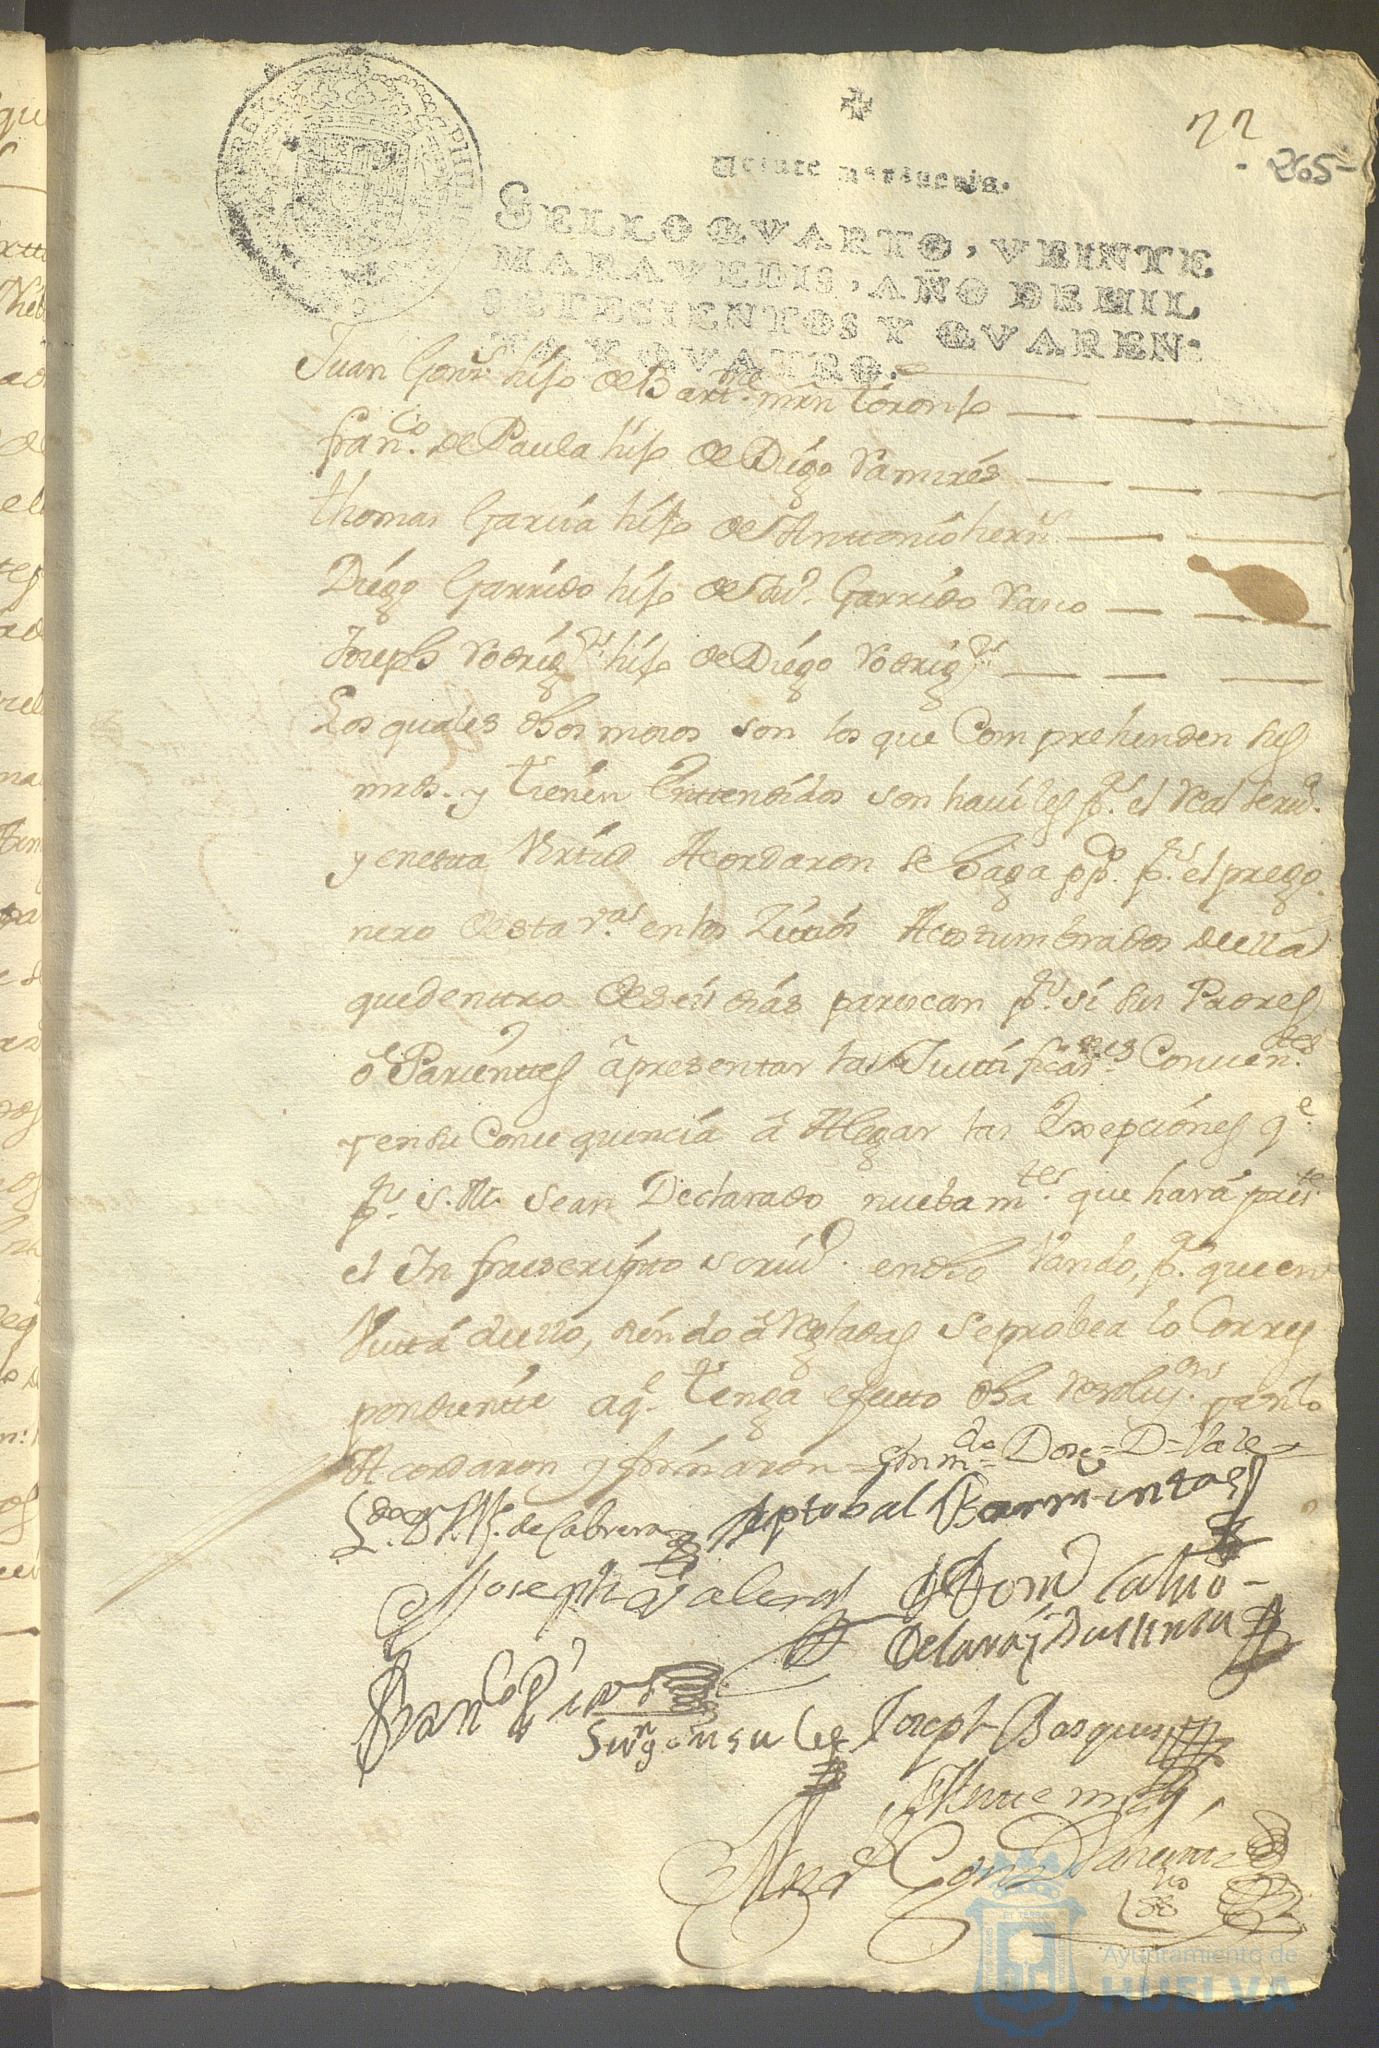 22
- 265 -
Veinte maravedis.
SELLO QVARTO, VEINTE
MARAVEDIS, AÑO DE MIL
SETECIENTOS Y QVAREN-
TA Y QVATRO.
PHILI
REX
Juan Gonz hijo de Bart.me mrn toronjo
fran.co de Paula hijo de Diego Ramires
thomas Garcia hijo de Anttonio hern
Diego Garrido hijo de Garrido
Joseph Rodrig.s hijo de Diego Rodrig.s
Los quales dhos mosos son los que Comprehenden sus
mrds. y tienen Enttendidos son haviles p.a el Real serv.o
y en esta Virtud Acordaron se haga pp.do p.r el prego
nero de esta v.a en los Zitios Acostumbrados de ella
que dentro de seis dias parescan p.r si sus Padres
o Parienttes a presentar las Justificas.nes Conven.tes
y en su Consequencia a Alegar las Excepciones q.e
p.r S. M. sean Declarado nuebam.te que hara pres.te
el Infraescripto scriv.o en dho Vando, p.a que en
Vista de ello, siendo a Regladas se probea lo Corres
pondiente a q.e tenga efectto dha resoluz.on y asi lo
Acordaron y firmaron = Enm.do Dose = D = Vale
L.do D. de Cabrera Xptobal Barrientos
Joseph de
Fran.co
Ju.n gonsales Joseph Basques
Antte mi,
Gonz
Ayuntamiento de
HUELVA